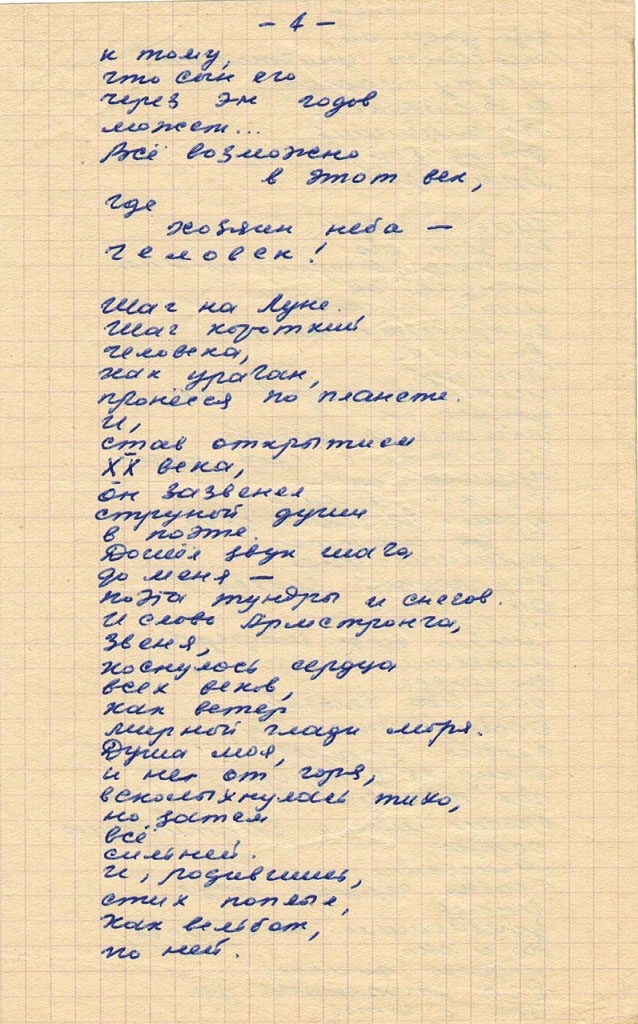 - 4 -
к тому,
что сын его
через эн годов
может...
Всё возможно
в этот век,
где
хозяин неба —
человек!
Шаг на Луне.
Шаг короткий
человека,
как ураган,
пронёсся по планете.
И,
став открытием
XX века,
он зазвенел
струной души
в поэте.
Дошёл звук шага
до меня —
поэта тундры и снегов.
И слово Армстронга,
звеня,
коснулось сердца
всех веков,
как ветер
мирной глади моря.
Душа моя,
и не от горя,
всколыхнулась тихо,
но затем
всё
сильней.
И, родившись,
стих поплыл,
как вельбот,
по ней.